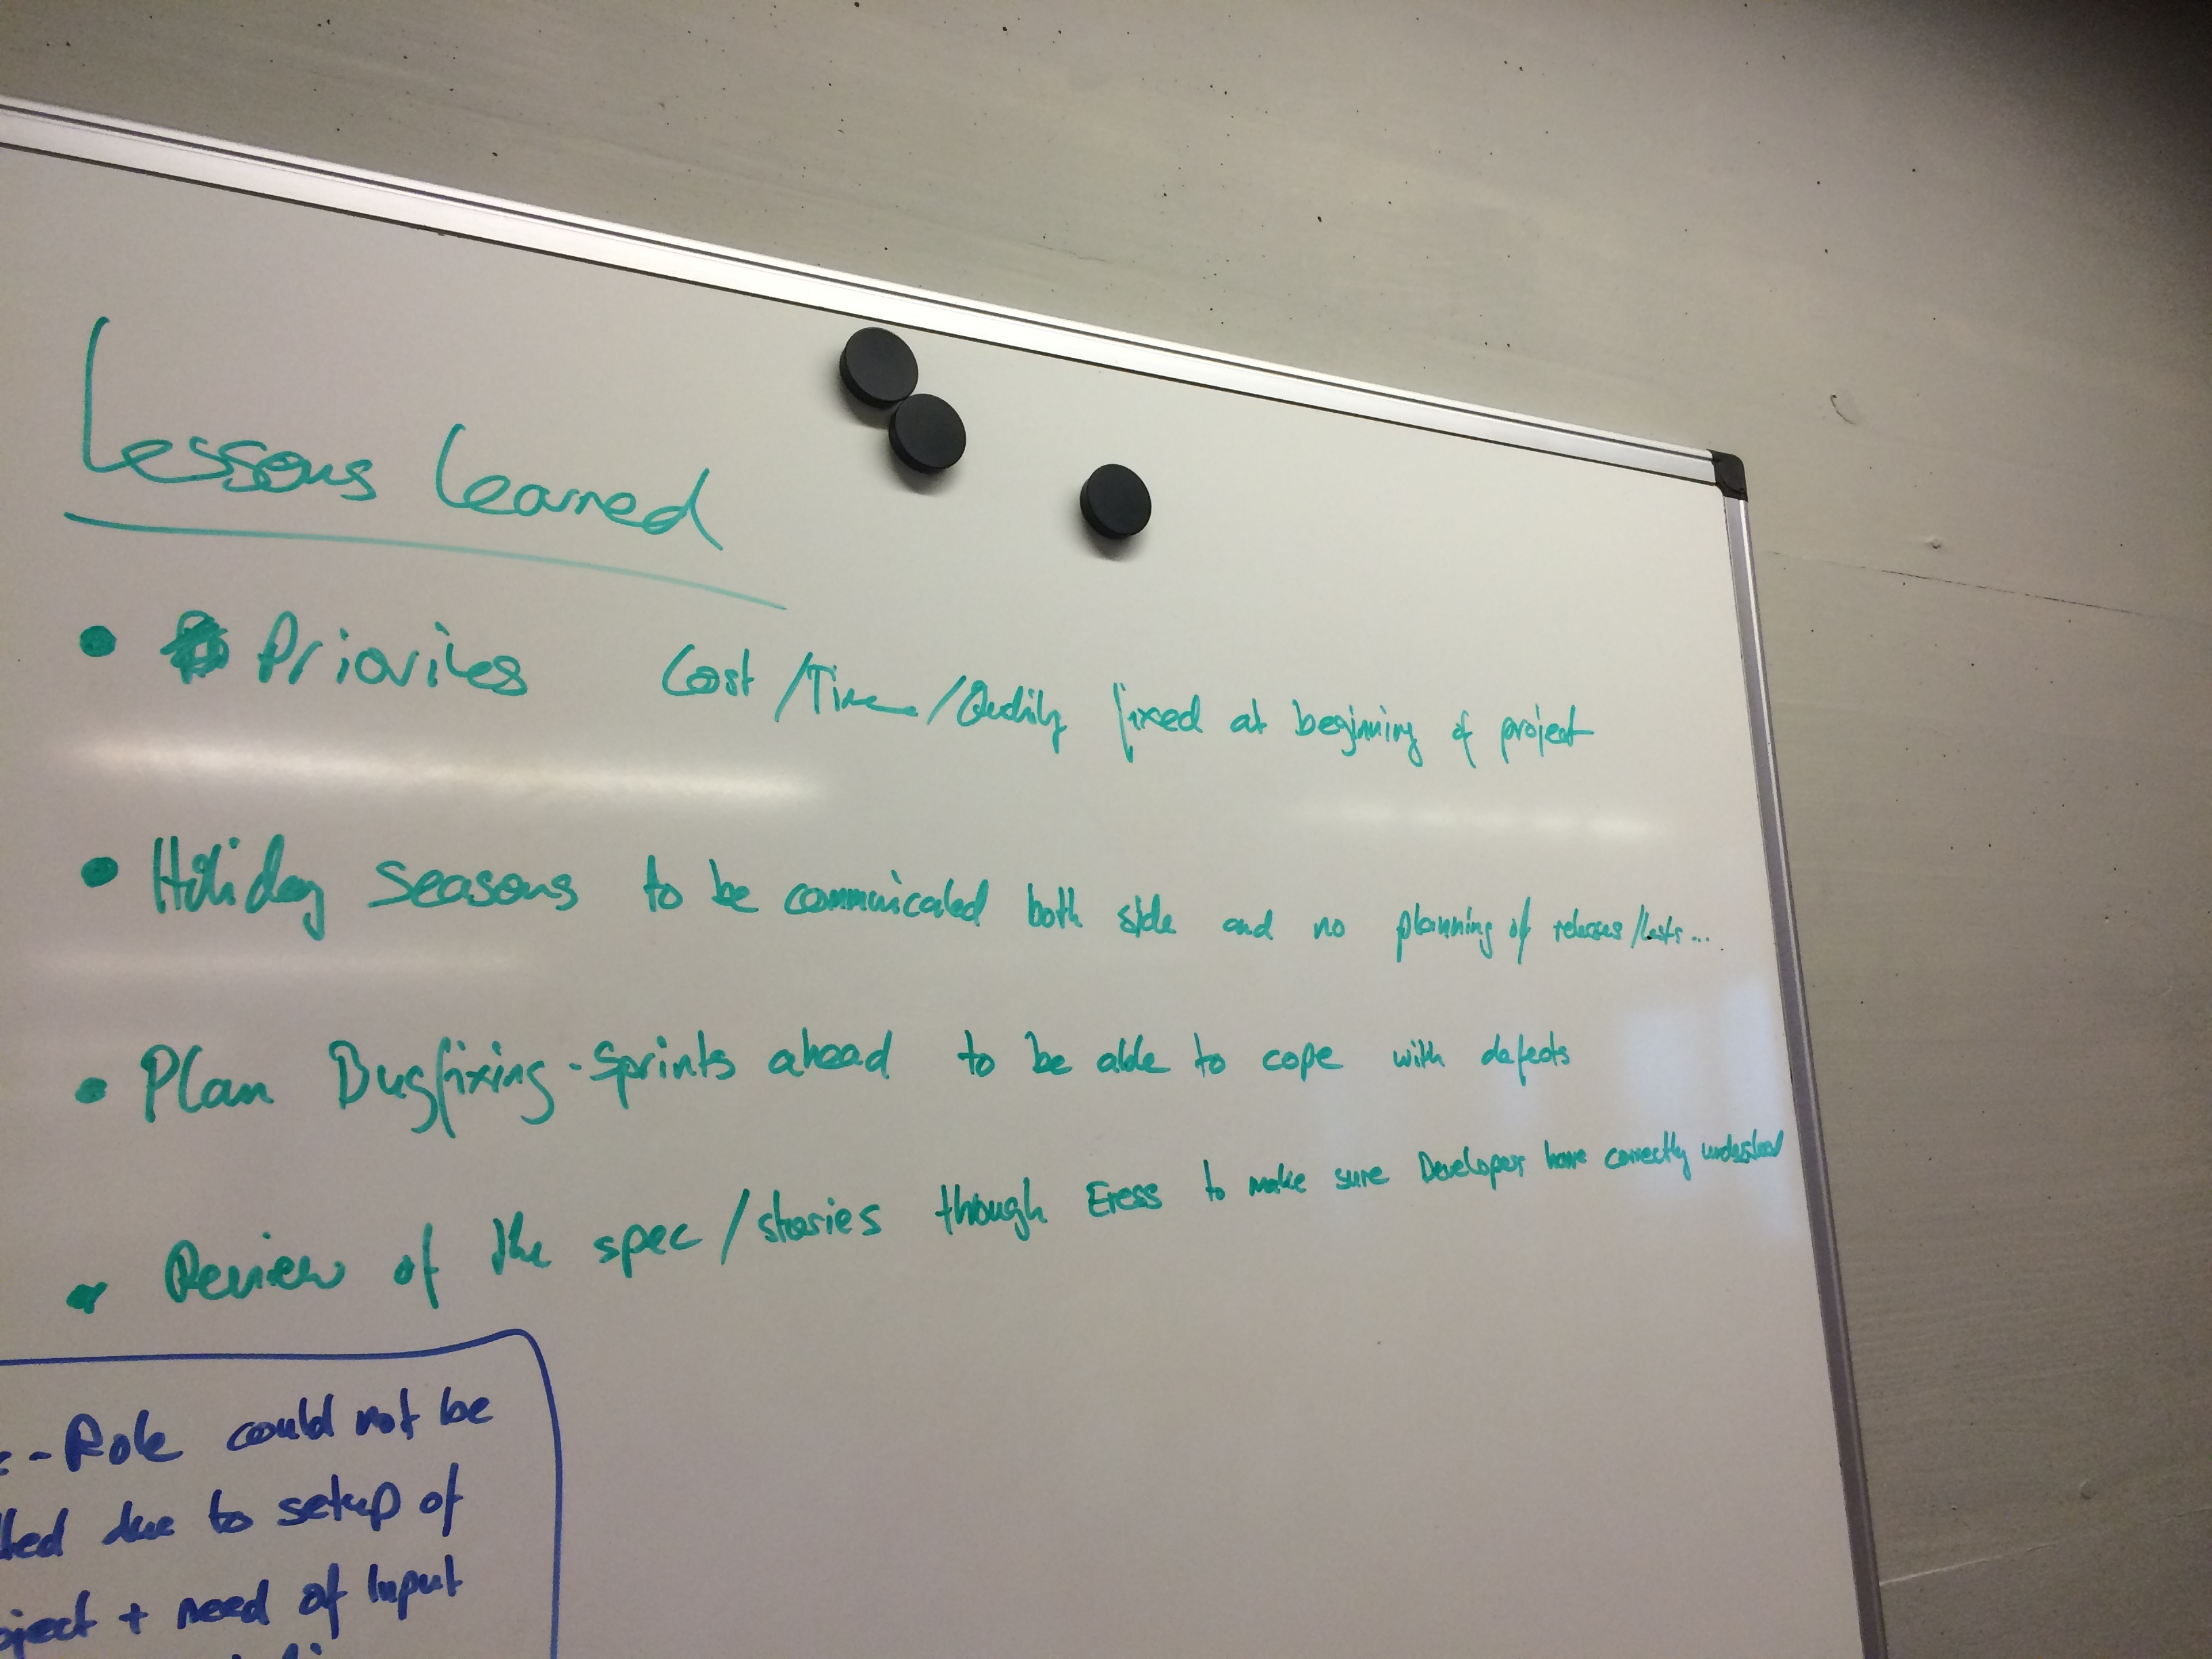 Lessons learned
• Priorites Cost /Time /Quality fixed at beginning of project
• Holiday seasons to be communicated both side and no planning of releases /tests...
• Plan Bugfixing-Sprints ahead to be able to cope with defects
• Review of the spec/stories though Eress to make sure Developers have correctly understood
-Role could not be
due to setup of
+ need of Input